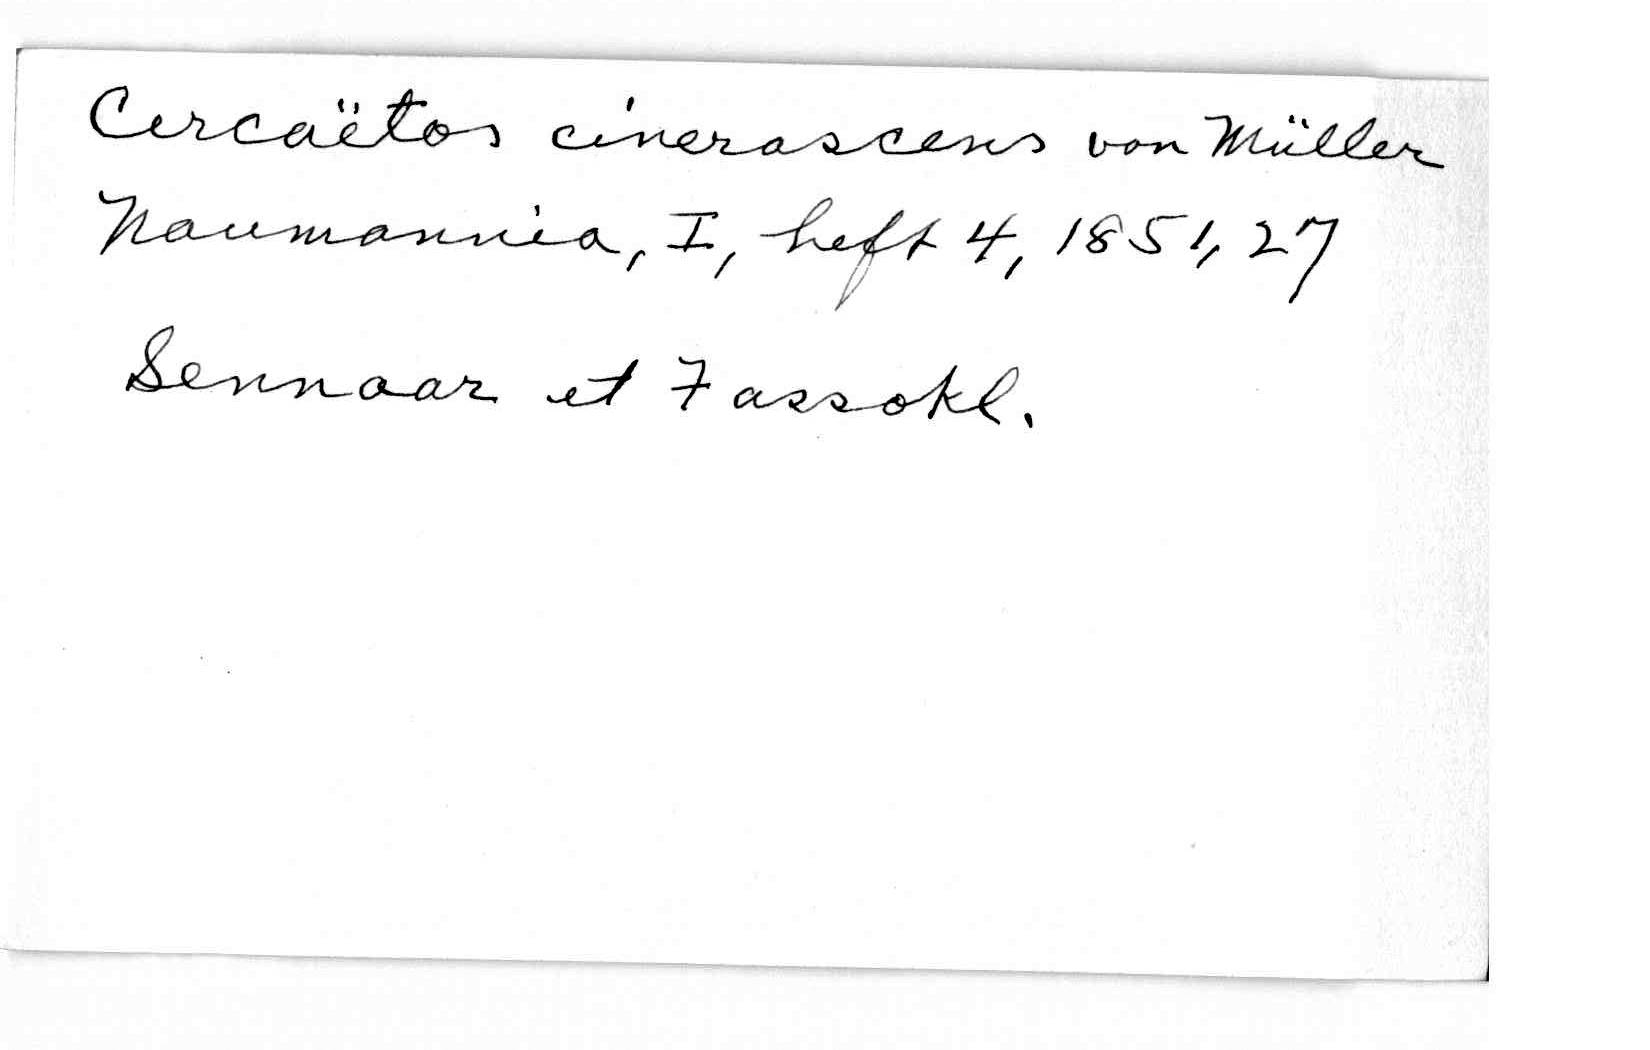 Cercaëtos cinerascens von Müller
Naumannia, I, heft 4, 1851, 27
Sennaar et Fassokl.